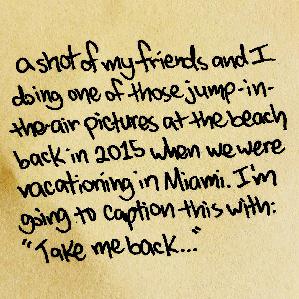 a shot of my friends and I
doing one of those jump-in-
the-air pictures at the beach
back in 2015 when we were
vacationing in Miami. I'm
going to caption this with:
"Take me back..."